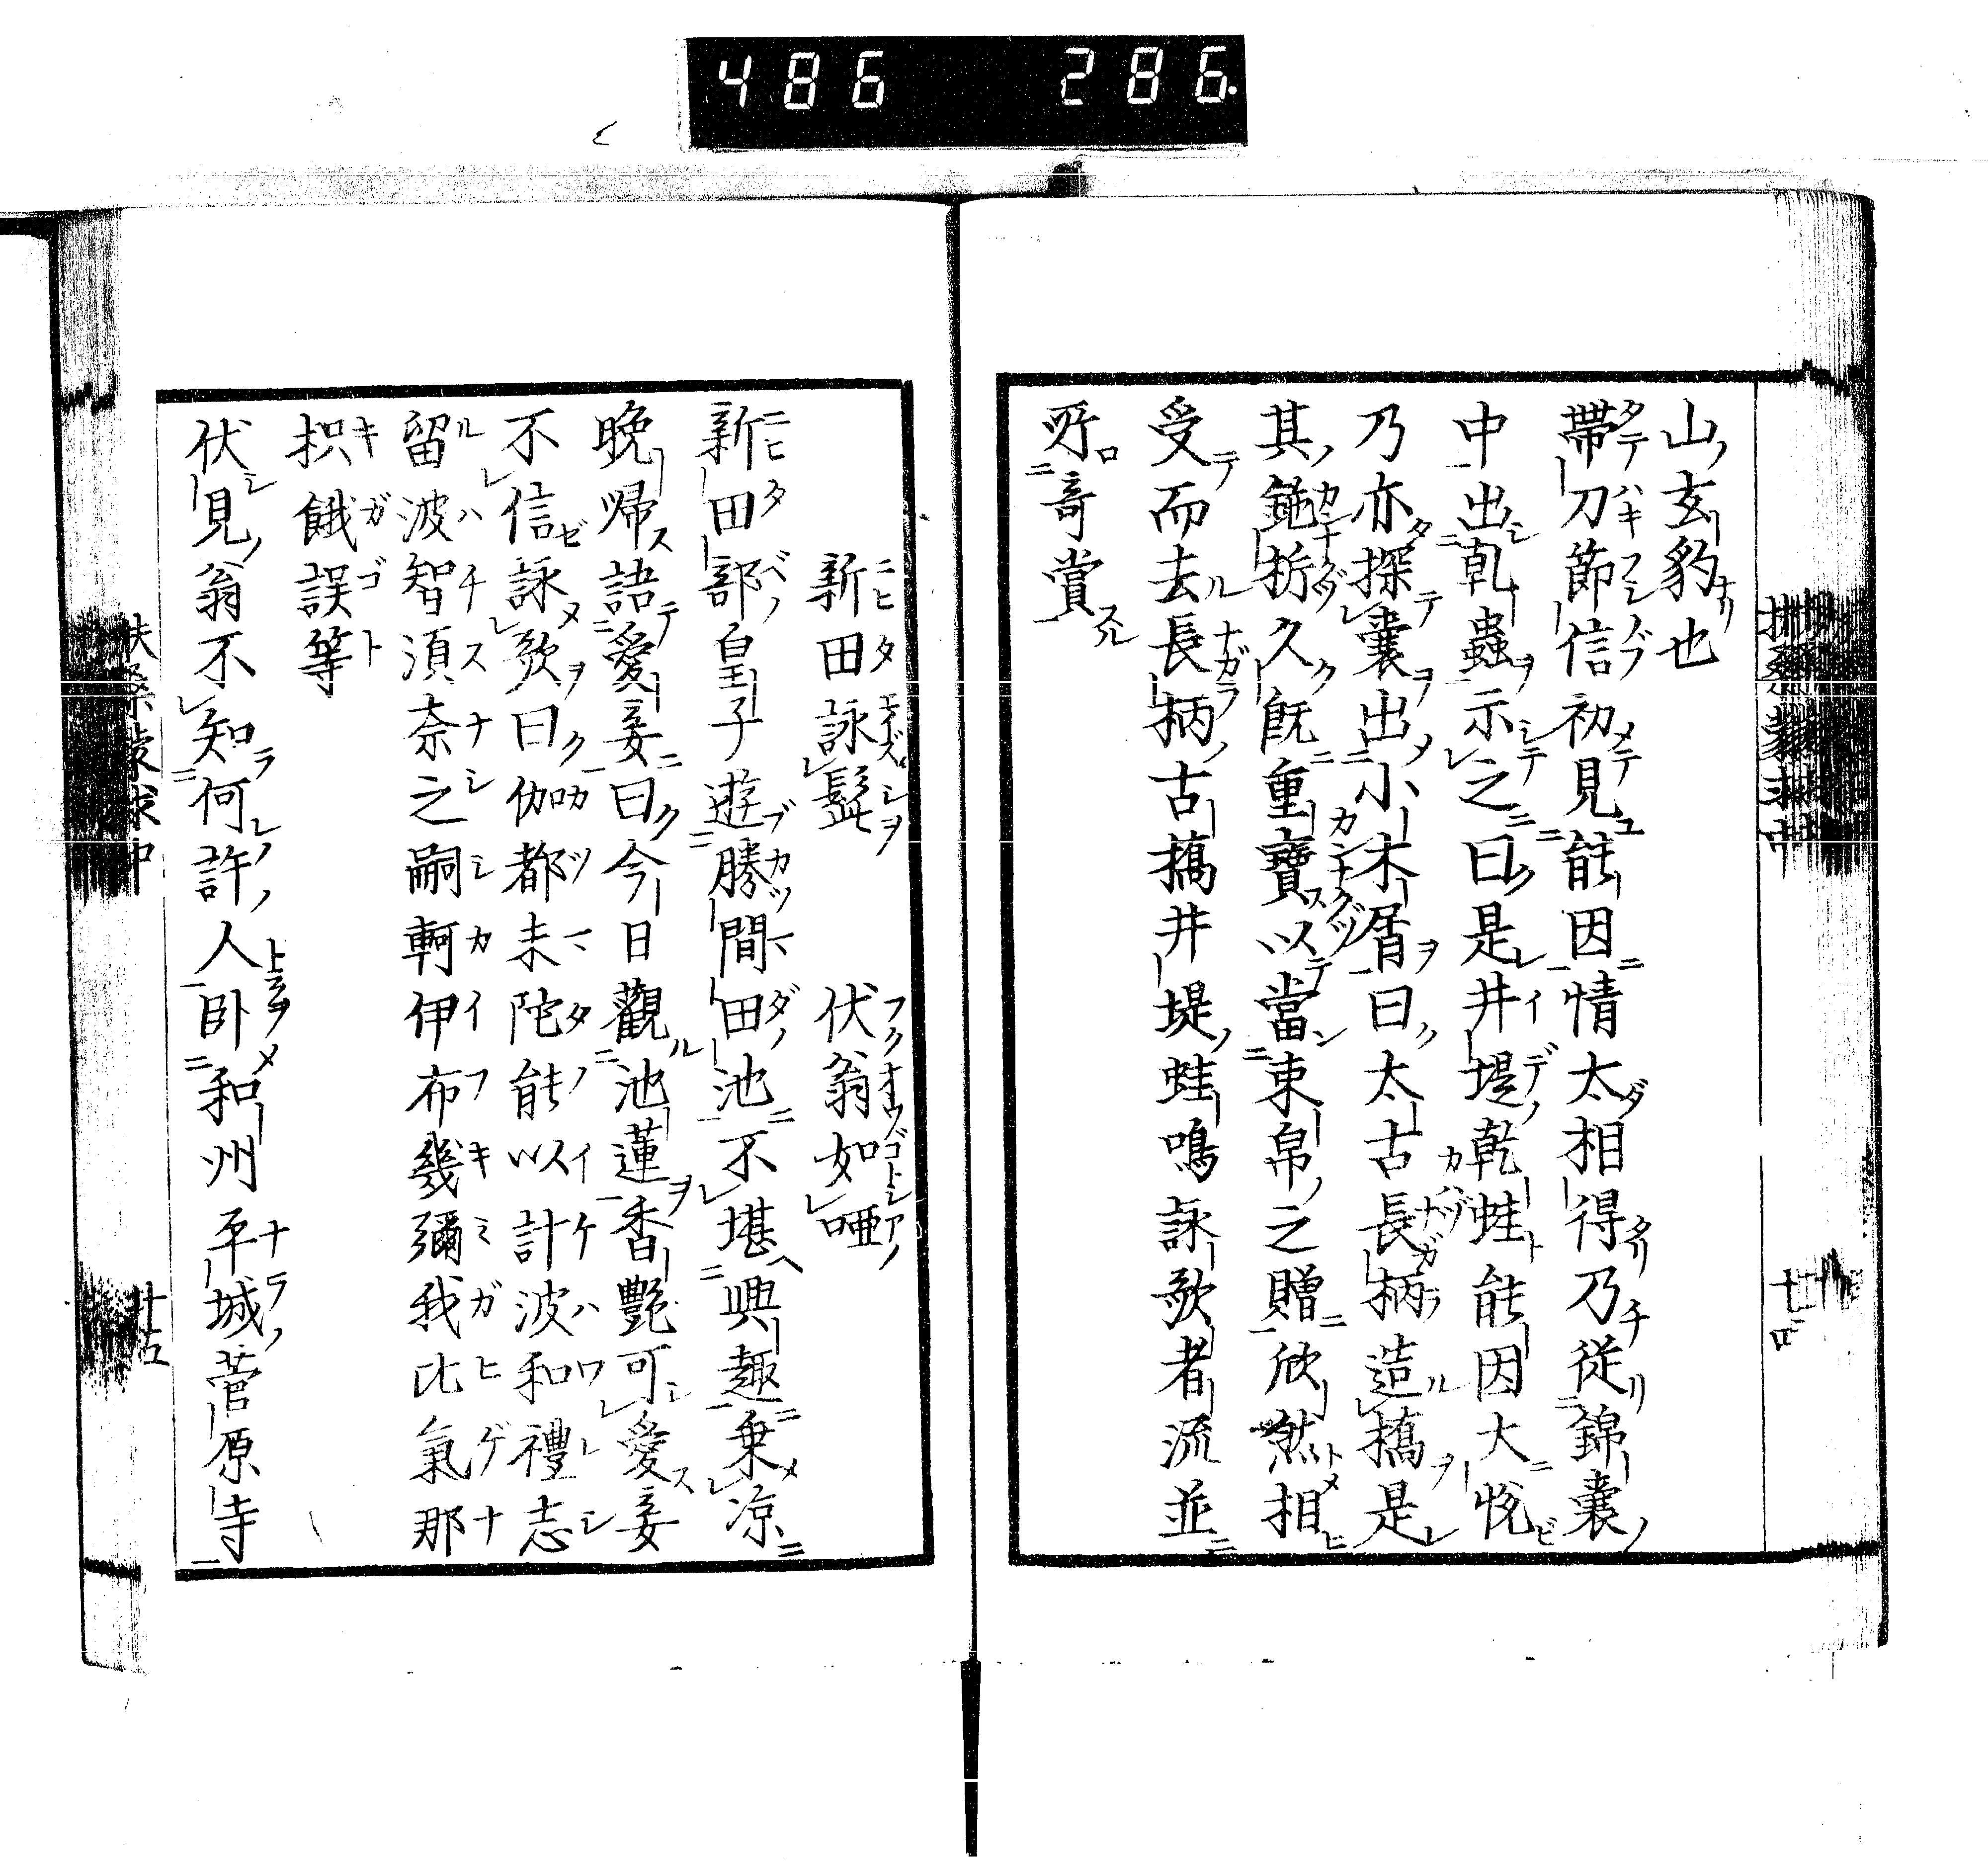 486 286
山玄豹也
帶刀節信初見能因情太相得乃從錦囊
中出乾蟲示之曰是井堤乾蛙能因大悅
乃亦探囊出小木屑曰太古長柄造橋是
其鉋㭊久既重寶以當束帛之贈欣然相
受而去長柄古橋井堤蛙鳴詠歌者流並
所哥賞
新田詠髭 伏翁如啞
新田部皇子遊勝間田池不堪興趣乗涼
晩帰語愛妾曰今日觀池蓮香艷可愛妾
不信詠歌曰伽都未陀能以計波和禮志
留波智須奈之嗣軻伊布幾彌我比氣那
枳餓誤等
伏見翁不知何許人卧和州平城菅原寺